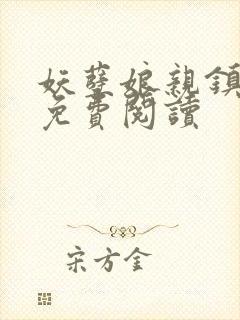 妖孽娘親鎮
免費閱讀
宋方金